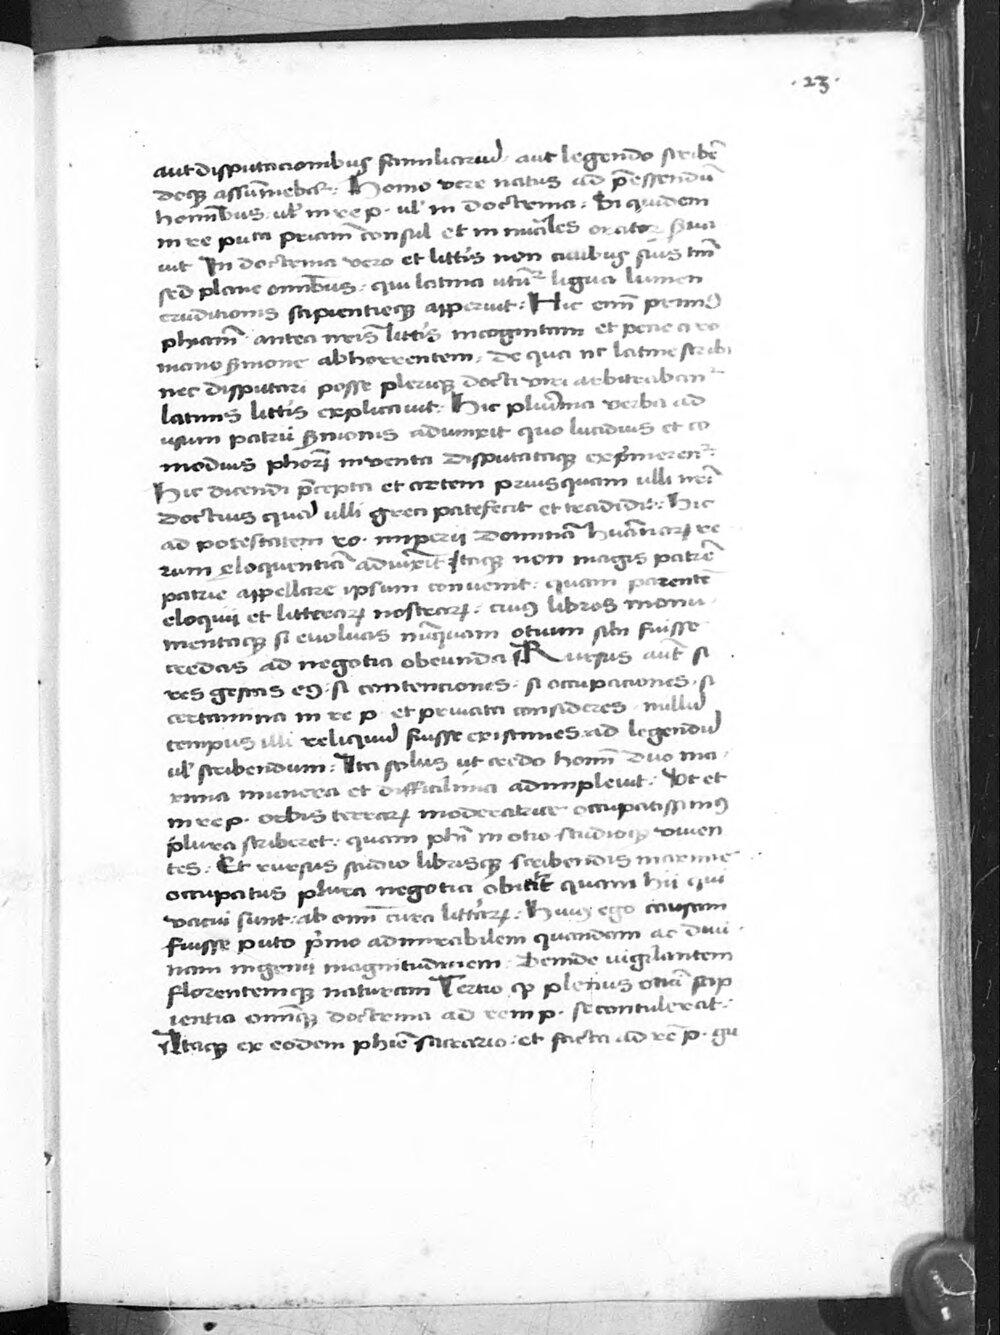 ·23·
aut disputacionibus familiariũ· aut legendo scribẽ
deq̃ assũmebat̃· Homo vere natus ad p̃essendũ
hominibus· ul̃ in re p· ul̃ in doctrina· Si quidem
in re pu consul et orator
uit In doctrina vero et litt̃is non ciuibus suis tm̃
sed plane omĩbus· qui latina utũr ligua lumen
eruditionis sapientieq̃ apperuit· Hic enĩ primꝰ
phiam̃ antea nr̃is litt̃is incognitam et pene a ro
mano s̃mone abhorrentem· de qua nc latine scribi
nec disputari posse pleriq̃ docti viri arbitraban̾
latinis litt̃is explicauit· Hic plur̃ima verba ad
usum patrii s̃monis adiunxit quo lucidius et co
modius phor̃ inventa disputataq̃ exp̃rimeren̾·
Hic dicendi p̃cepta et artem priusquam ulli nr̃i
doctius quã ulli greci patefecit et tradidit· Hic
ad potestatem ro· imperii dominã huãnaꝝ re
rum eloquentiã adiuxit Itaq̃ non magis patrẽ
patrie appellare ipsum convenit· quam parentẽ
eloquii et litteraꝝ nostraꝝ· cuiꝰ libros monu·
mentaq̃ si evoluas nũquam otium fuisse
credas ad negotia obeunda Rursus aut̃ si
res gestas eiꝰ· si contenciones· si occupaciones· si
certamina in re p· et privata consideres· nullũ
tempus illi reliquũ fuisse existimes ad legendũ
ul̃ scribendum· Ita solus ut credo homĩ duo ma·
xima munera et difficilima adimplevit· Ut et
in re p· orbis terraꝝ moderatrice occupatissimꝰ
plura scriberet· quam phĩ in otio studioq̃ viven
tes· Et rursus studio librisq̃ scribendis maxime
occupatus plura negotia obierit quam hii qui
vacui sunt· ab omĩ cura litt̃aꝝ· Huiꝰ ego causam
fuisse puto p̃mo admirabilem quandam ac divi·
nam ingenii magnitudinem· Deinde vigilantem
florentemq̃ naturam Tertio ꝙ plenus sap
ientia omĩq̃ doctrina ad rem p· se contulerat·
Itaq̃ ex eodem phiẽ sacrario· et facta ad rẽ p· gu